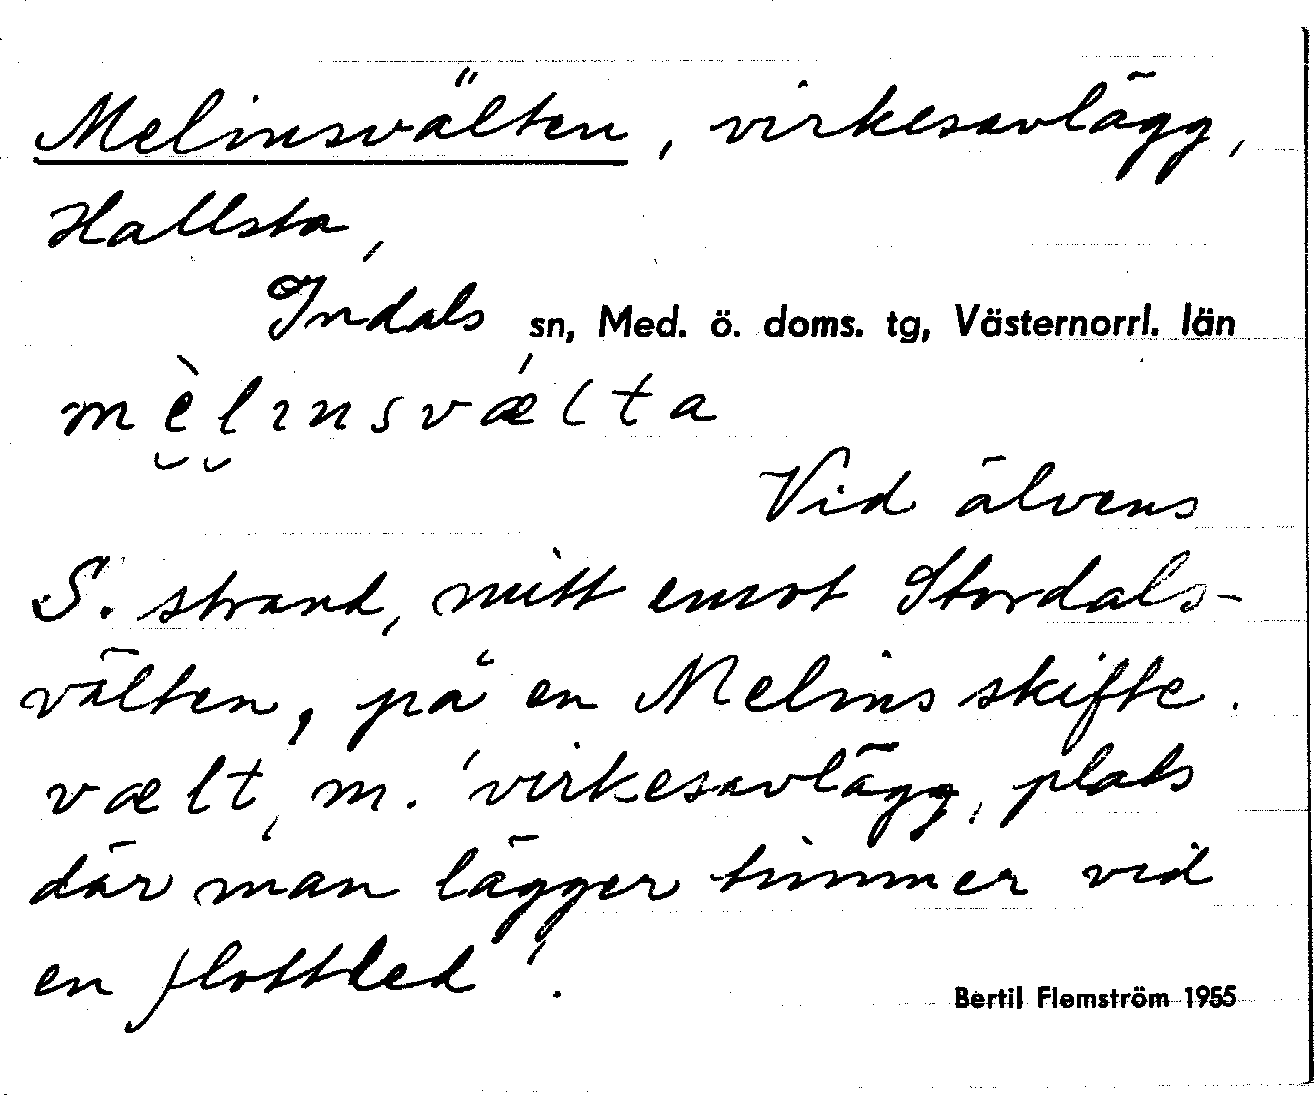 Melinsvälten, virkesavlägg,
Hallsta,
Indals sn, Med. ö. doms. tg, Västernorrl. län
mè̮l̮ınsvǽlta
Vid älvens
S. strand, mitt emot Stordals-
välten, på en Melins skifte.
vælt, m. 'virkesavlägg, plats
där man lägger timmer vid
en flottled'.
Bertil Flemström 1955